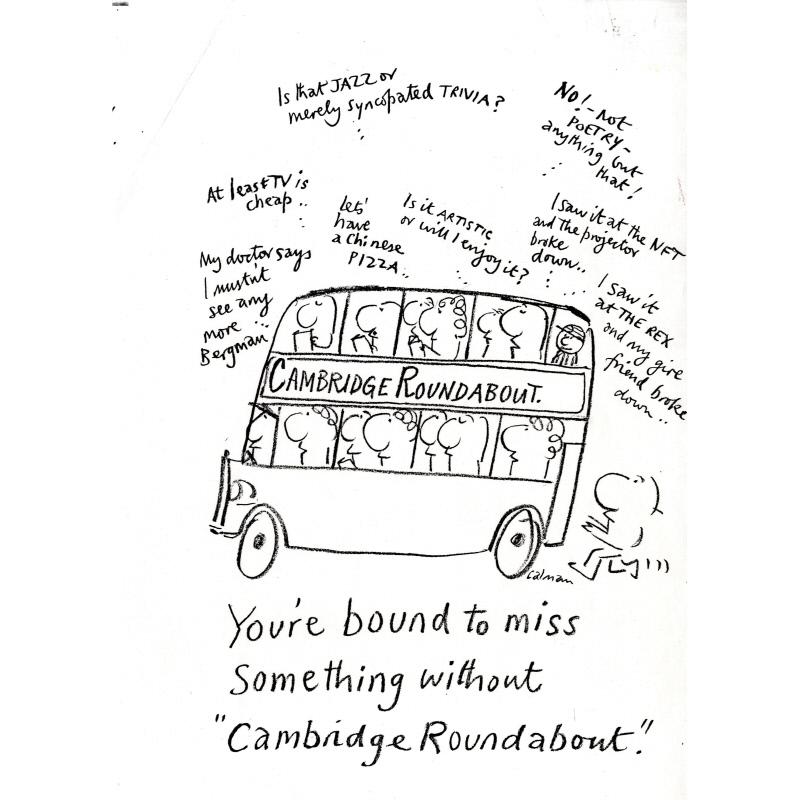 Is that JAZZ or
merely syncopated TRIVIA?
No! - not
POETRY -
anything but
that!
At least TV is
cheap..
Let's
have
a Chinese
PIZZA..
Is it ARTISTIC
or will I enjoy it?
I saw it at the NFT
and the projector
broke
down..
My doctor says
I mustn't
see any
more
Bergman..
I saw it
at THE REX
and my girl
friend broke
down..
CAMBRIDGE ROUNDABOUT.
Calman
You're bound to miss
Something without
"Cambridge Roundabout."